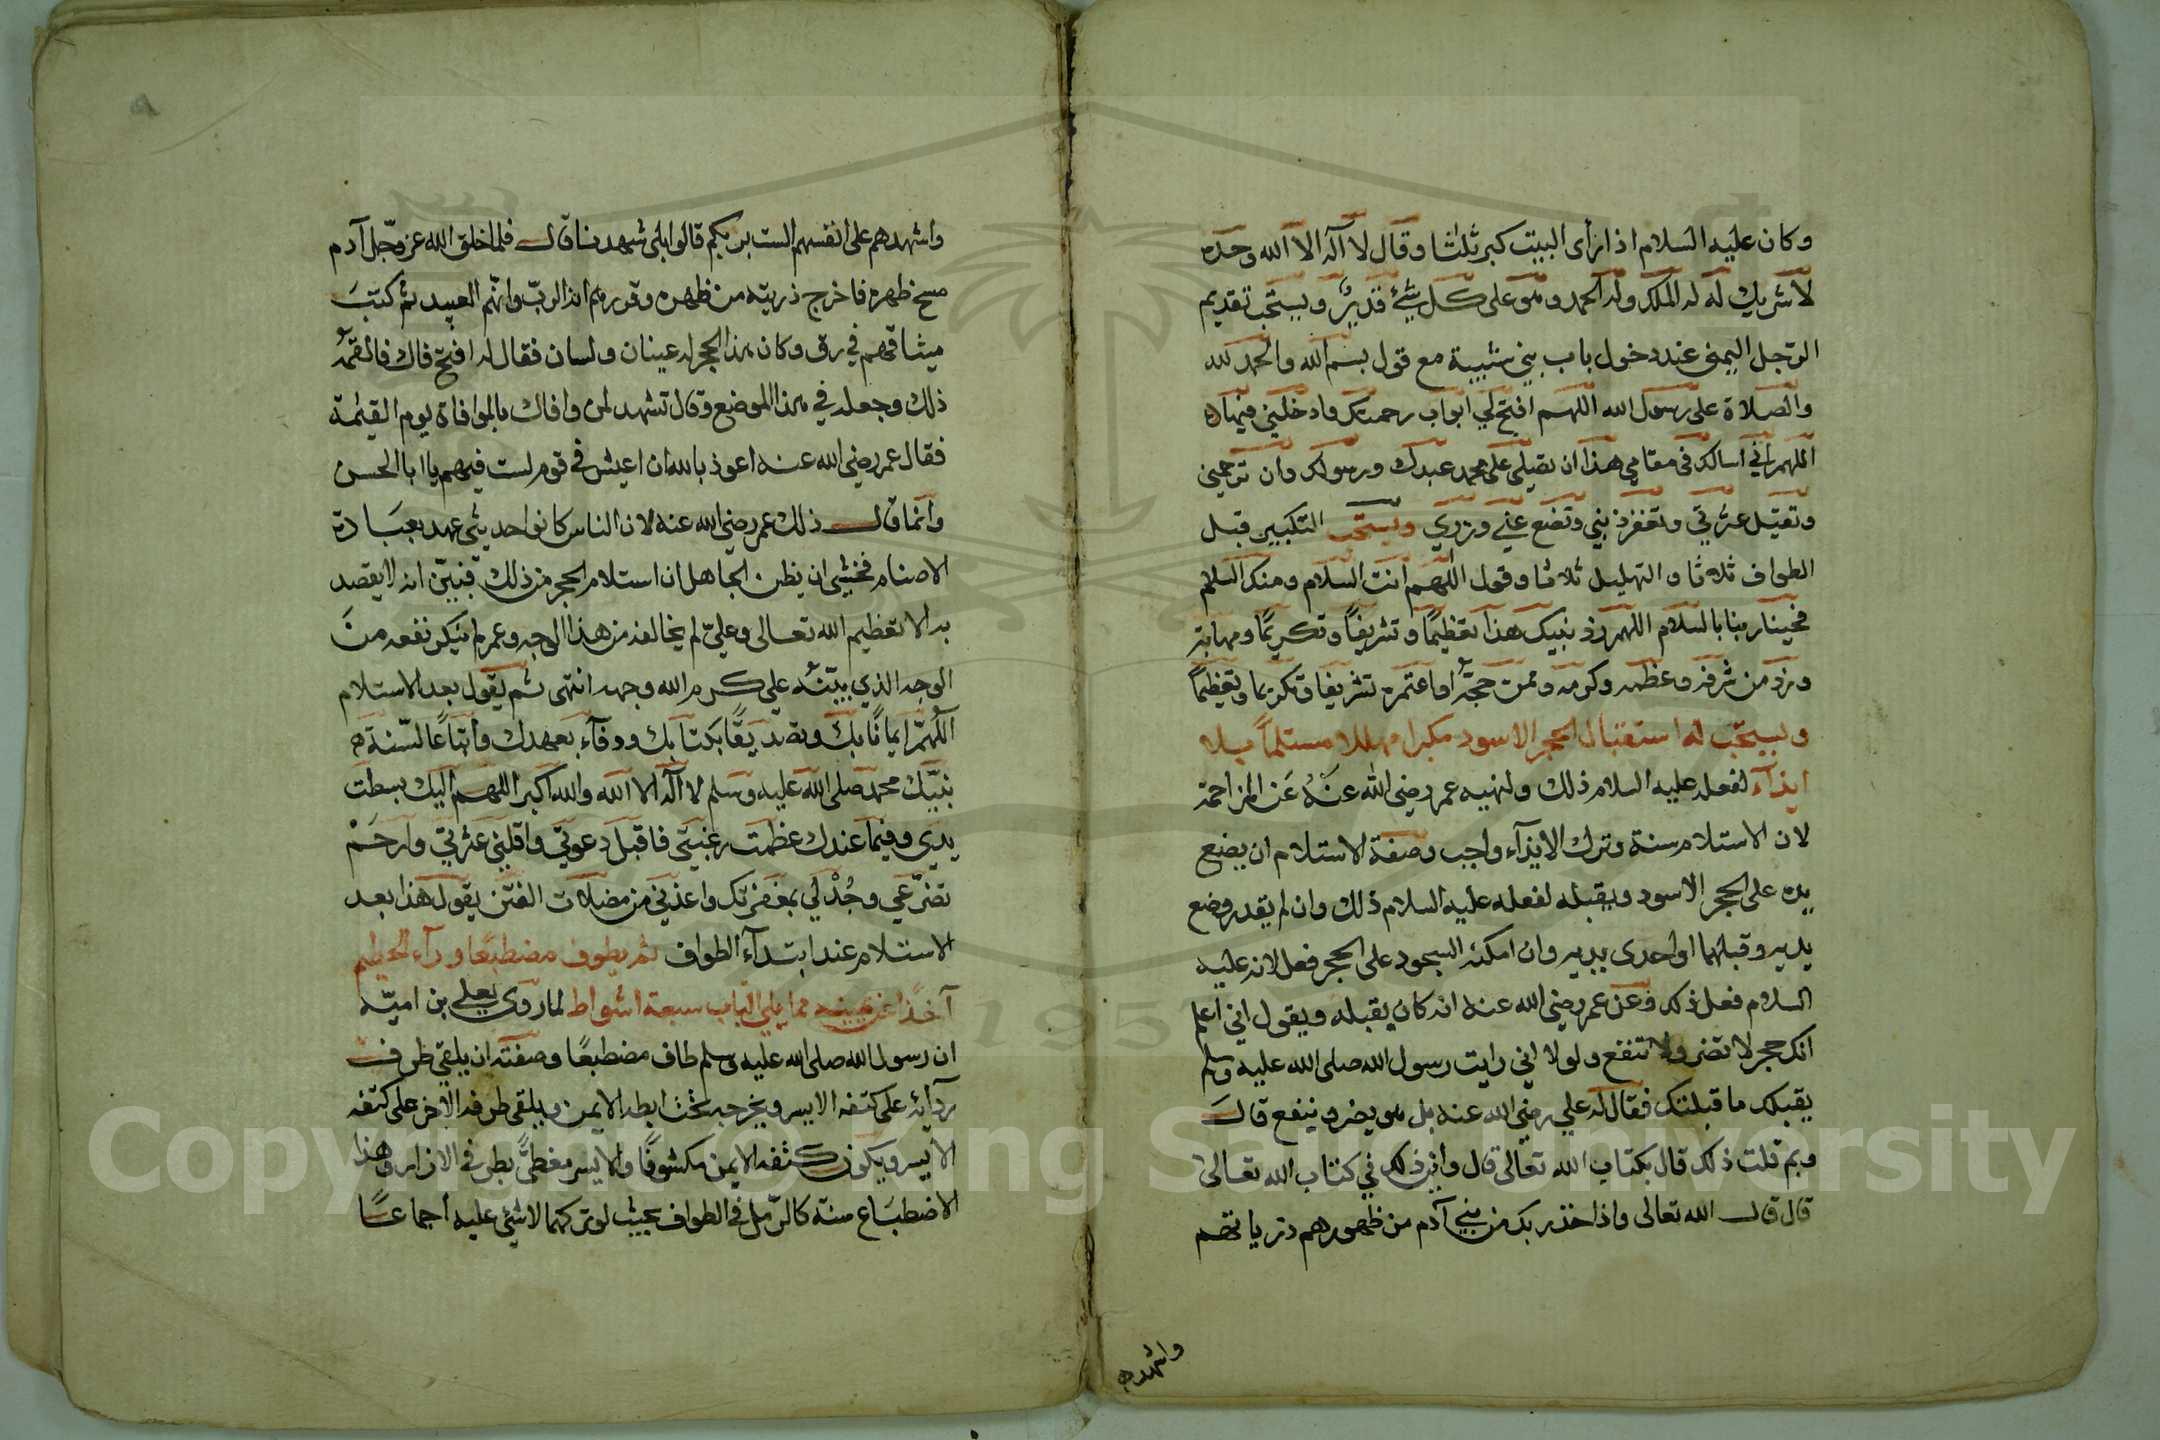 وكان عليه السلام اذا رأى البيت كبر ثلثا وقال لا اله الا الله وحده
لا شريك له له الملك وله الحمد وهو على كل شيئ قدير ويستحب تقديم
الرجل اليمنى عند دخول باب بني شيبة مع قول بسم الله والحمد لله
والصلاة على رسول الله اللهم افتح لي ابواب رحمتك وادخلني فيها
اللهم اني اسالك في مقامي هذا ان تصلي على محمد عبدك ورسولك وان ترحمني
وتقيل عثرتي وتغفر ذنبي وتضع عني وزري ويستحب التكبير قبل
الطواف ثلاثا والتهليل ثلاثا وقول اللهم انت السلام ومنك السلام
فحينا ربنا بالسلام اللهم زد بيتك هذا تعظيمًا وتشريفًا وتكريمًا ومهابة
وزد من شرفه وعظمه وكرمه وممن حجه أو اعتمره تشريفا وتكريما وتعظيمًا
ويستحب له استقبال الحجر الاسود مكبرا مهللا مستلمًا بلا
ايذاء لفعله عليه السلام ذلك ولنهيه عمر رضي الله عنه عن المزاحمة
لان الاستلام سنة وترك الايذاء واجب وصفة الاستلام ان يضع
يده على الحجر الاسود ويقبله لفعله عليه السلام ذلك وان لم يقدر وضع
يديه وقبلهما او احدى يديه وان امكنه السجود على الحجر فعل لانه عليه
السلام فعل ذلك وعن عمر رضي الله عنه انه كان يقبله ويقول اني اعلم
انك حجر لا تضر ولا تنفع ولولا اني رايت رسول الله صلى الله عليه وسلم
يقبلك ما قبلتك فقال له علي رضي الله عنه بل هو يضر وينفع قال
وبم قلت ذلك قال بكتاب الله تعالى قال واين ذلك في كتاب الله تعالى
قال قال الله تعالى واذ اخذ ربك من بني آدم من ظهورهم ذرياتهم
واشهدهم
واشهدهم على انفسهم الست بربكم قالوا بلى شهدنا قال فلما خلق الله عز وجل آدم
مسح ظهره فاخرج ذريته من ظهره وقررهم انه الرب وانهم العبيد ثم كتب
ميثاقهم في رق وكان هذا الحجر له عينان ولسان فقال له افتح فاك فالقمه
ذلك وجعله في هذا الموضع وقال تشهد لمن وافاك بالموافاة يوم القيمة
فقال عمر رضي الله عنه اعوذ بالله ان اعيش في قوم لست فيهم يا ابا الحسن
وانما قال ذلك عمر رضي الله عنه لان الناس كانوا حديثي عهد بعبادة
الاصنام فخشي ان يظن الجاهل ان استلام الحجر من ذلك فبيّن انه لا يقصد
به الا تعظيم الله تعالى وعليّ لم يخالفه من هذا الوجه وعمر لم ينكر نفعه من
الوجه الذي بيّنه علي كرم الله وجهه انتهى ثم يقول بعد الاستلام
اللهم ايمانًا بك وتصديقًا بكتابك ووفاء بعهدك واتباعًا لسنة
نبيك محمد صلى الله عليه وسلم لا اله الا الله والله اكبر اللهم اليك بسطت
يدي وفيما عندك عظمت رغبتي فاقبل دعوتي واقلني عثرتي وارحم
تضرعي وجُدْ لي بمغفرتك واعذني من مضلات الفتن يقول هذا بعد
الاستلام عند ابتداء الطواف ثم يطوف مضطبعًا وراء الحطيم
آخذًا عن يمينه مما يلي الباب سبعة اشواط لما روى يعلى بن امية
ان رسول الله صلى الله عليه وسلم طاف مضطبعًا وصفته ان يلقي طرف
ردائه على كتفه الايسر ويخرجه تحت ابطه الايمن ويلقي طرفه الاخر على كتفه
الايسر ويكون كتفه الايمن مكشوفًا والايسر مغطىً بطرفي الازار وهذا
الاضطباع سنة كالرمل في الطواف بحيث لو تركهما لا شيئ عليه اجماعًا